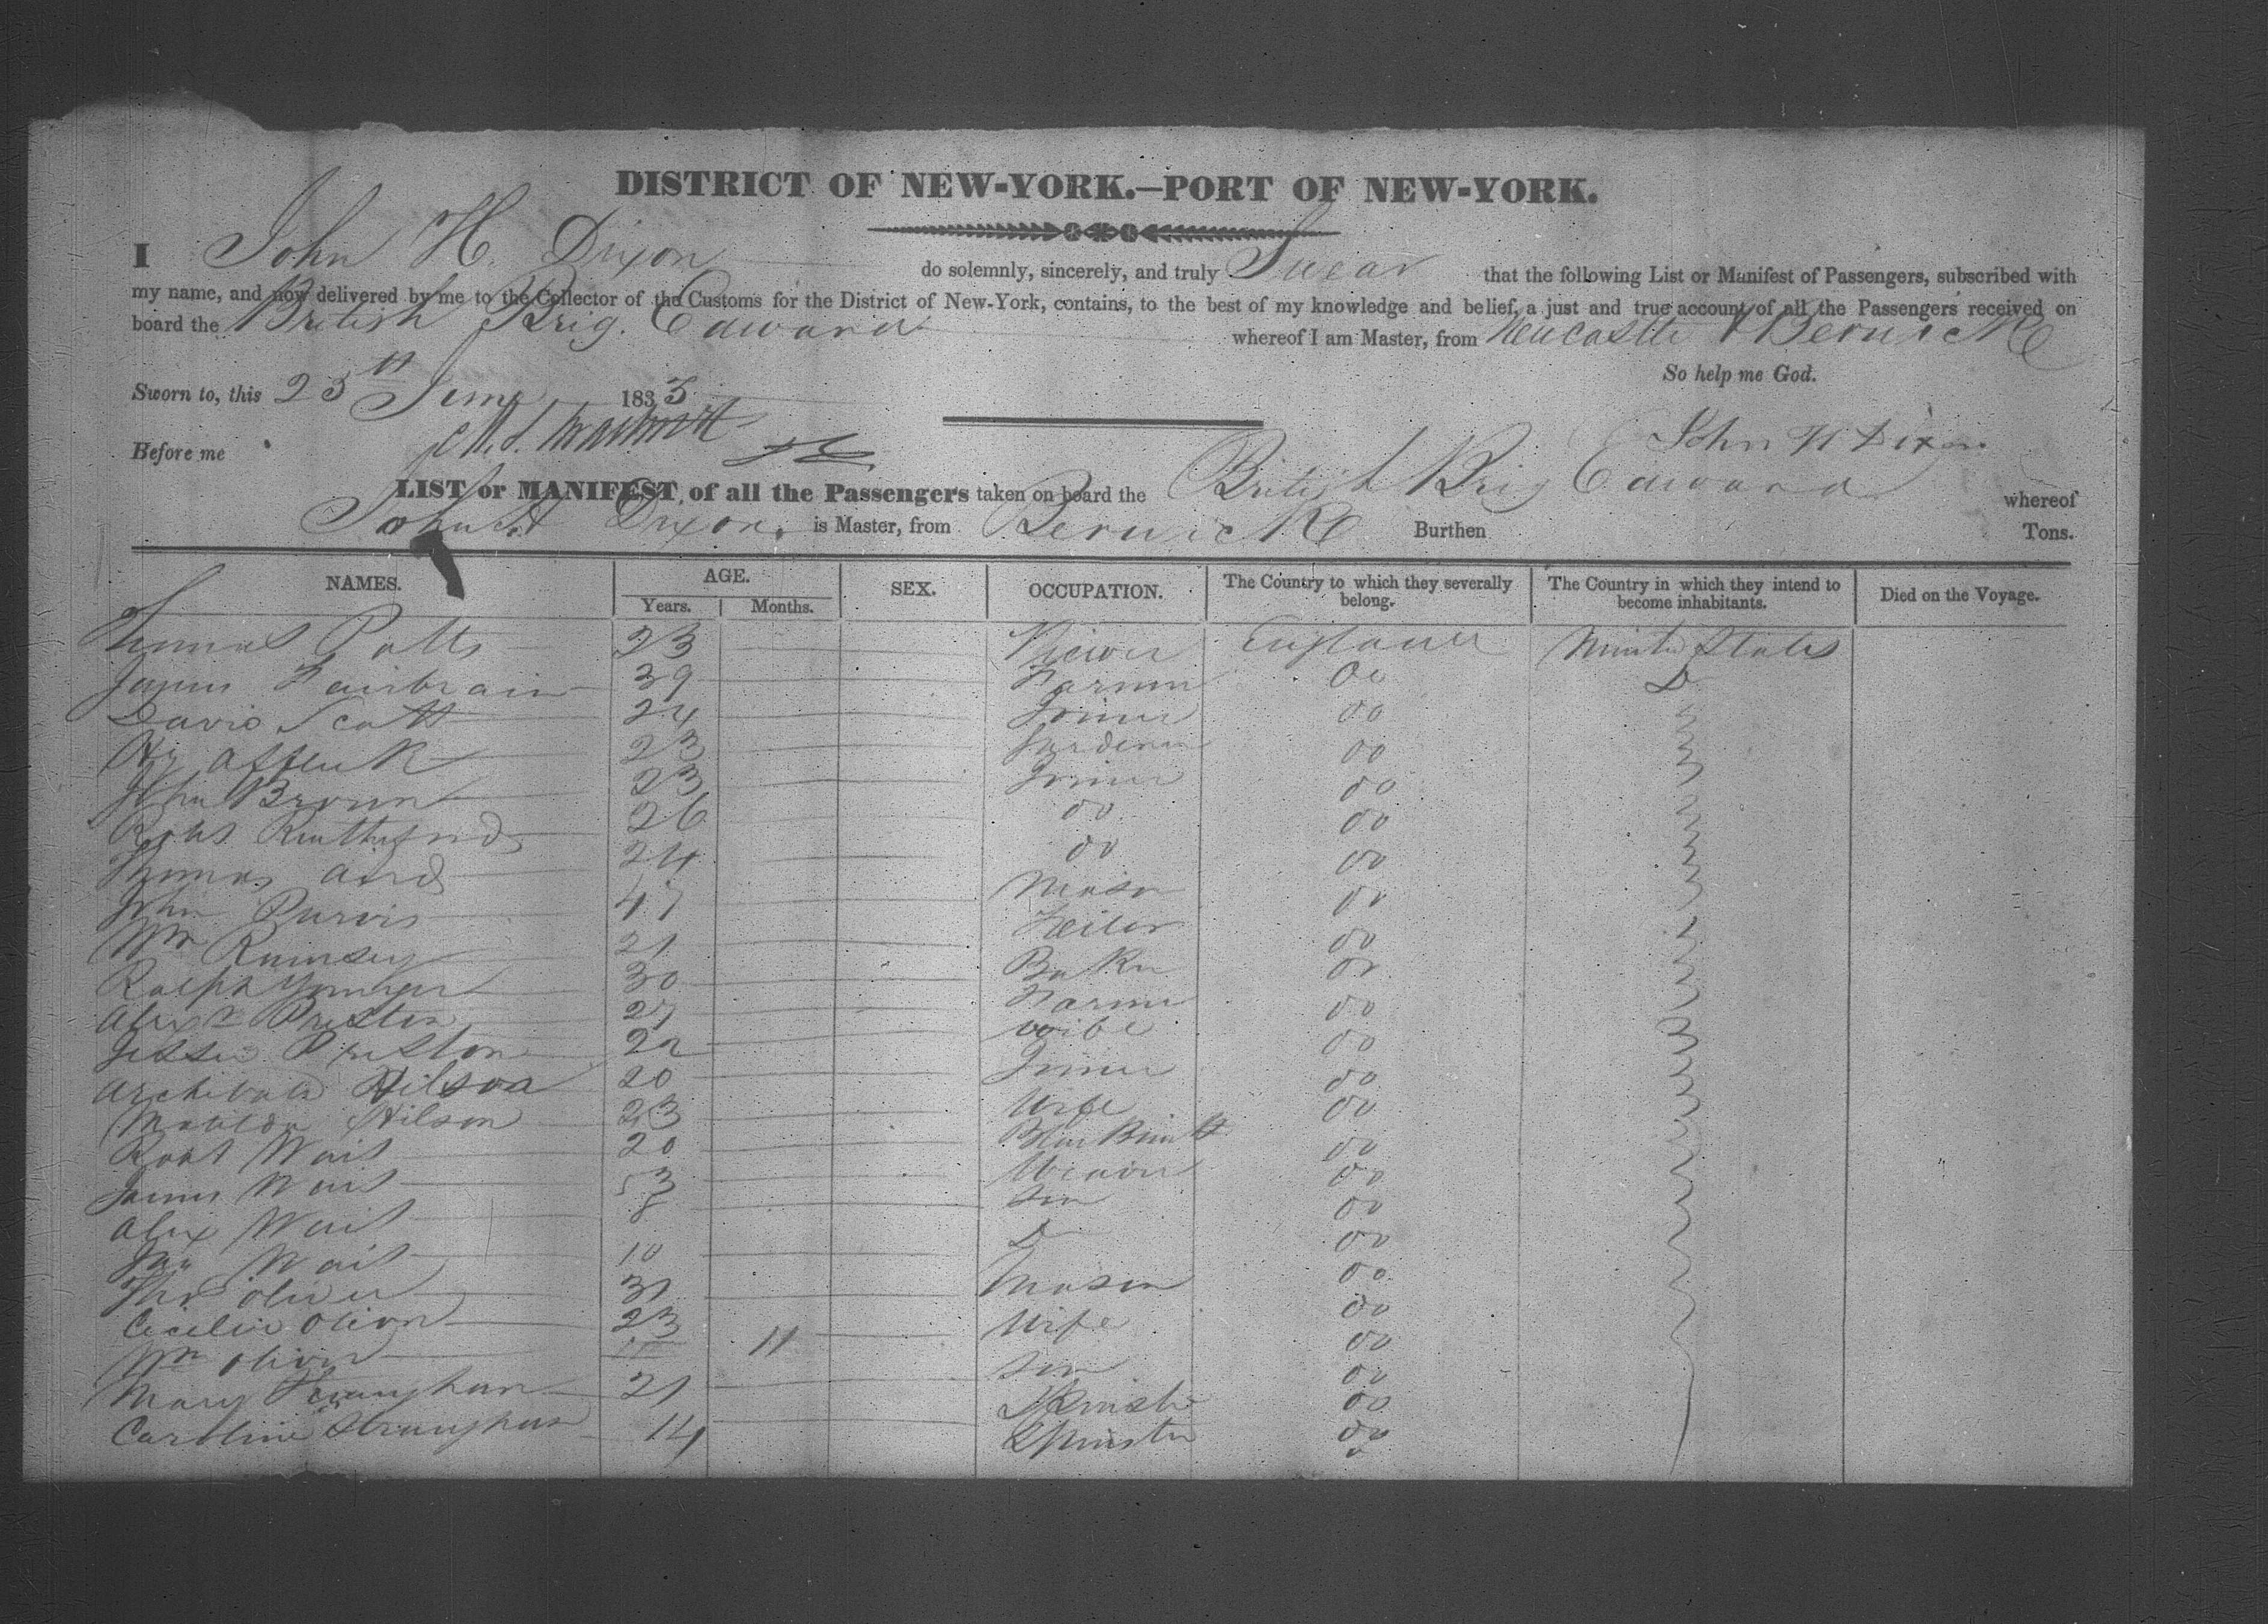 DISTRICT OF NEW-YORK.—PORT OF NEW-YORK.
I John H. Dixon do solemnly, sincerely, and truly Swear that the following List or Manifest of Passengers, subscribed with
my name, and now delivered by me to the Collector of the Customs for the District of New-York, contains, to the best of my knowledge and belief, a just and true account of all the Passengers received on
board the British Brig. Edward whereof I am Master, from Newcastle & Berwick
So help me God.
Sworn to, this 25th June 1833
John H Dixon
Before me
LIST or MANIFEST, of all the Passengers taken on board the British Brig Edward whereof
John H Dixon. is Master, from Berwick Burthen Tons.
NAMES. AGE. SEX. OCCUPATION. The Country to which they severally belong. The Country in which they intend to become inhabitants. Died on the Voyage.
Years. Months.
Thomas Potts 23 England United States
James Fairbrain 39 Farmer Do Do
David Scott 24 Joiner Do
Affleck 23 Gardener Do
John Brown 23 Joiner Do
Robt Rutherford 26 Do Do
Thomas Aird 24 Do Do
John Purvis 47 Mason Do
Wm Rumsey 21 Do
Ralph Younger 30 Baker Do
Alexr Preston 27 Farmer Do
Jessie Preston 22 Wife Do
Archibald Hilson 20 Joiner Do
Hilson 23 Wife Do
Robt Wait 20 Do
James Wait 53 Weaver Do
Alex Wait 8 Son Do
Wait 10 Do Do
Thos Oliver 31 Mason Do
Cecelia Oliver 23 Wife Do
Wm Oliver 11 Son Do
Mary Straughan 21 Spinster Do
Caroline Straughan 14 Spinster Do